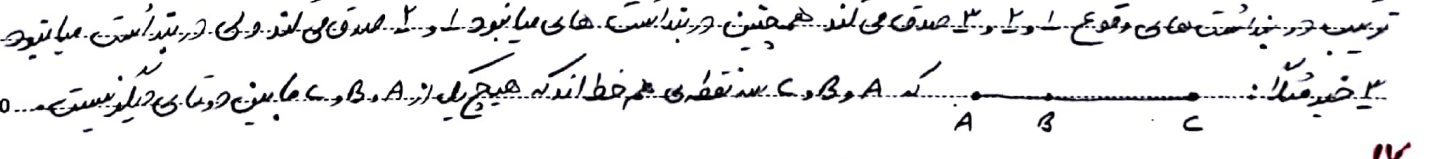 ترتیب در بنداشت های وقوع ۱ و ۲ و ۳ صدق می کند همچنین در بنداشت های میانبود ۱ و ۲ صدق می کند ولی در بنداشت میانبود
۳ خیر مثلاً: A B C که A و B و C سه نقطه ی هم خط اند که هیچ یک از A و B و C مابین دوتای دیگر نیست.
۱۷